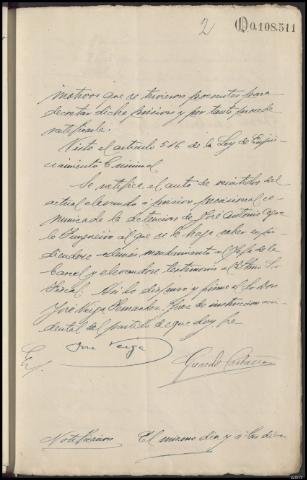 2
0.108.511
motivos que se tuvieron presentes para
decretar dicha prision y por tanto procede
ratificarla.
Visto el articulo 516 de la Ley de Enjui-
ciamiento Criminal
Se ratifica el auto de veintidos del
actual elevando a prision provisional co-
municada la detencion de José Antonio
al que se le haga saber expi-
diendose mandamiento al Jefe de la
Carcel y elevandose testimonio al Ilmo Sr.
Fiscal. Asi lo dispuso y firma el Sr. Don
José Varga Fernandez, Juez de instruccion acci-
dental del partido de que doy fe
E/
José Varga
Notificacion El mismo dia y a los